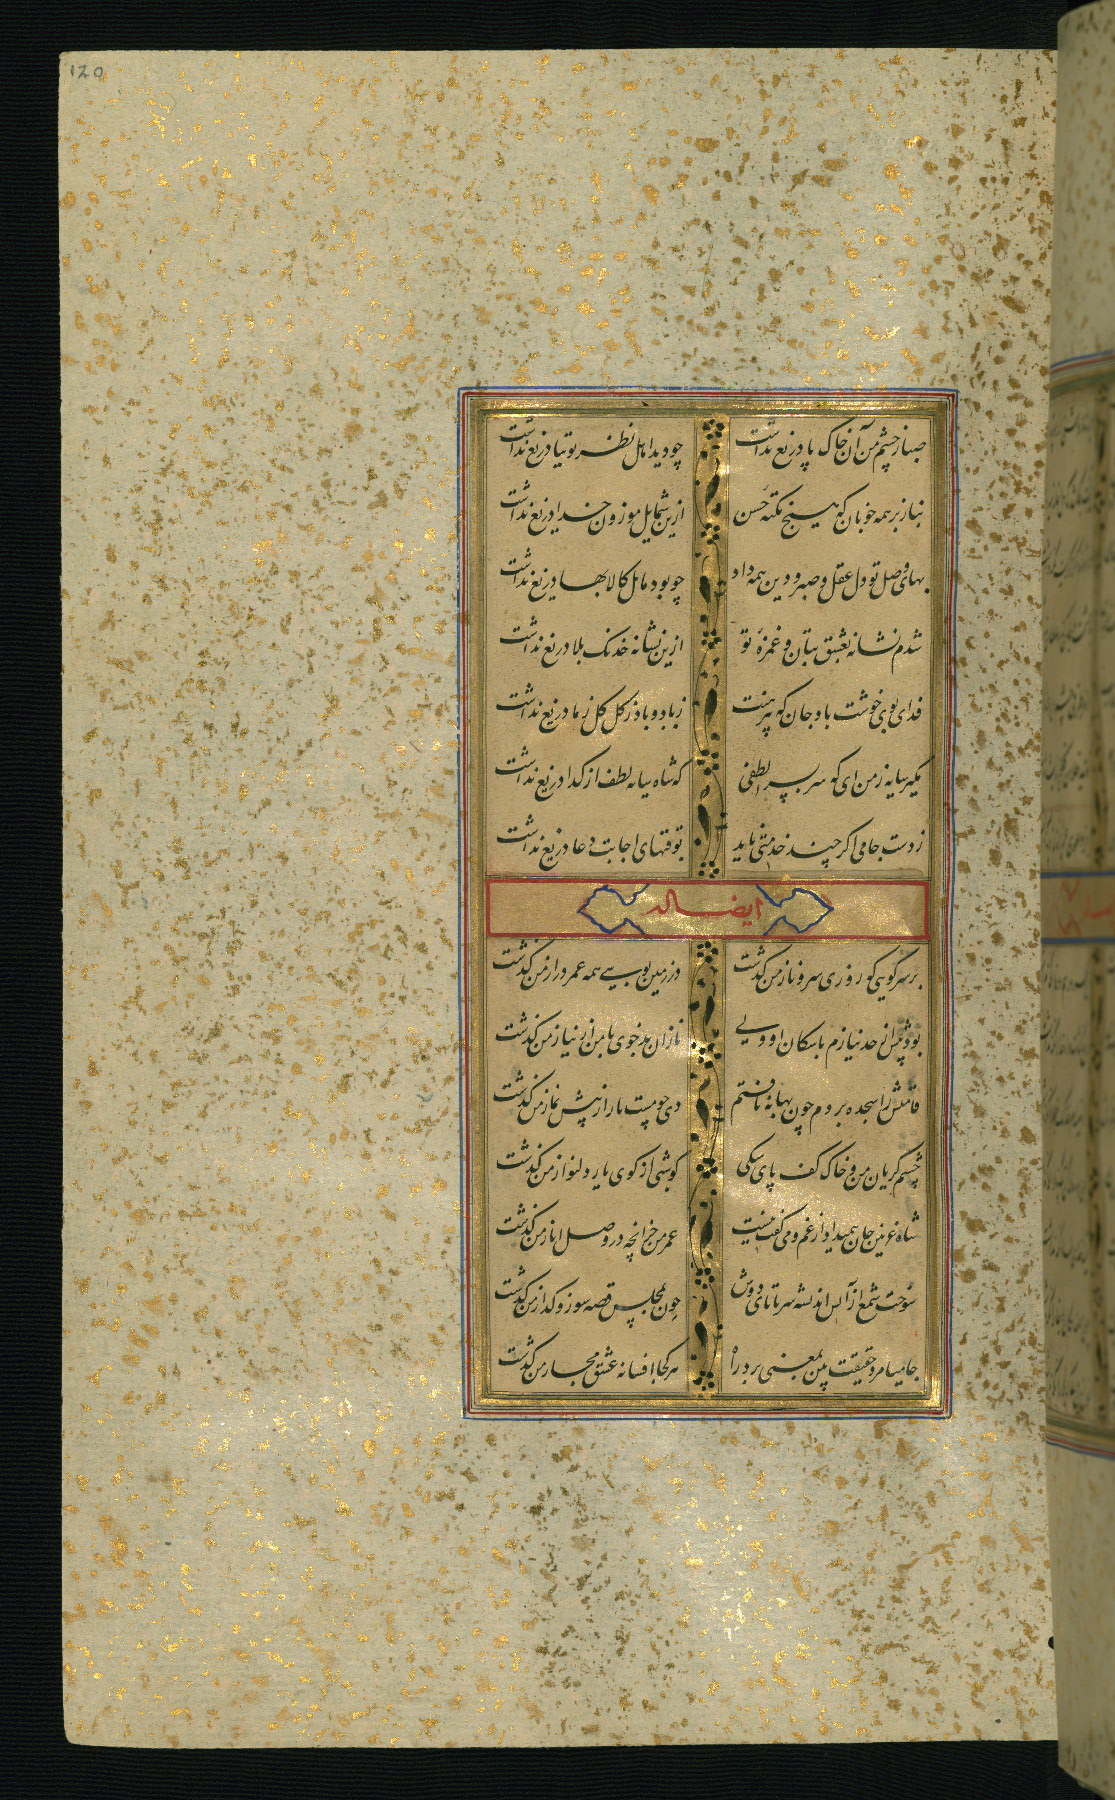 120
صبا ز چشم من آن خاک پا دریغ نداشت
چو دید اهل نظر توتیا دریغ نداشت
بناز بر همه خوبان که هیچ نکتهٔ حسن
ازین شمایل موزون خدا دریغ نداشت
بهای وصل تو دل عقل و صبر و دین همه داد
چو بود مائل کالا بها دریغ نداشت
شدم نشانه بعشق بتان و غمزهٔ تو
ازین نشانه خدنک بلا دریغ نداشت
فدای بوی خوشت باد جان که پیرهنت
زباد و باد ز کل کل ز ما دریغ نداشت
مکیر سایه ز من ای که سر بسر لطفی
که شاه سایهٔ لطف از کدا دریغ نداشت
ز دست جامی اکر چند خدمتی ناید
بوقتهای اجابت دعا دریغ نداشت
ایضا له
بر سر کویی کو روزی سرو ناز من کذشت
در زمین بوسی همه عمر دراز من کذشت
بود پیش از حد نیازم با سکان او ولی
ناز آن بدخوی با من از نیاز من کذشت
قامتش را سجده بردم چون بهانه یافتم
دی چو مست ما را ز پیش نماز من کذشت
چشم کریان من و خاک کف پای سکی
کو شبی از کوی یار دلنواز من کذشت
شاه غزنین جان همیداد از غم و می کفت نیست
عمر من جز آنچه در وصل ایاز من کذشت
سوخت شمع از آتش اندیشه سر تا پای دوش
چون بمجلس قصهٔ سوز و کداز من کذشت
جامیا مرد حقیقت بین بمعنی برد راه
هر کجا افسانهٔ عشق مجاز من کذشت